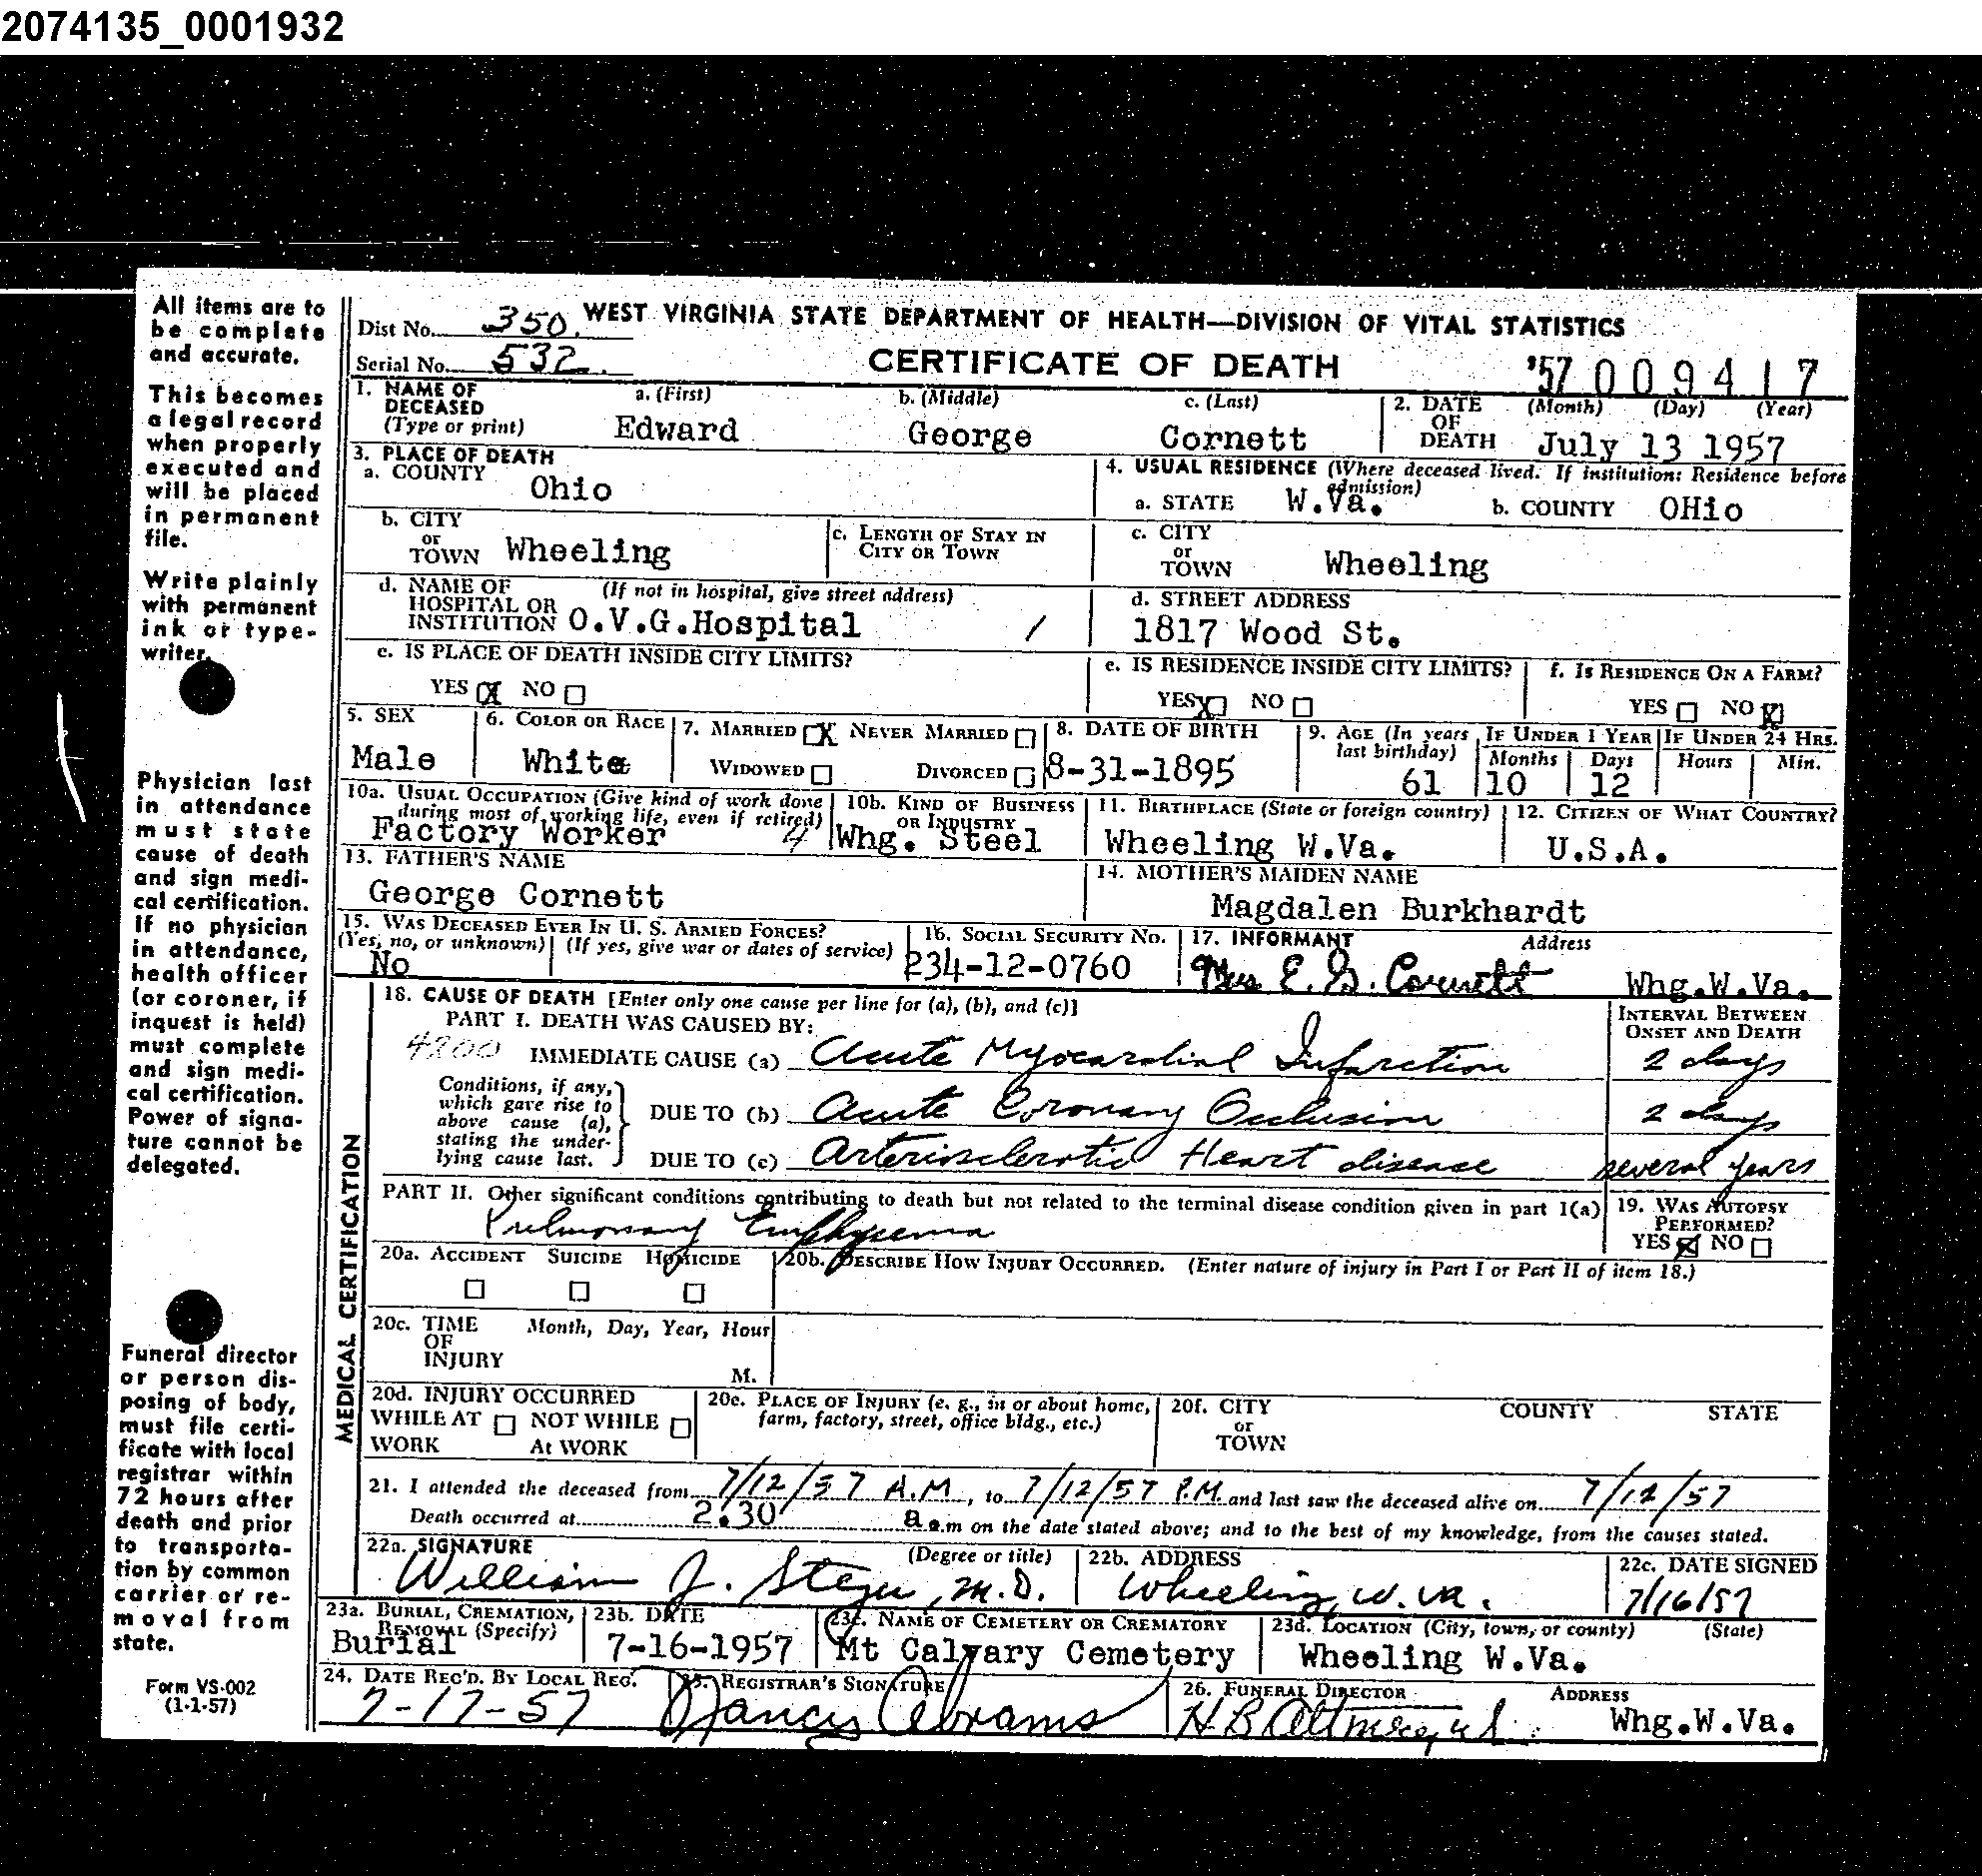 2074135_0001932
All items are to
be complete
and accurate.
This becomes
a legal record
when properly
executed and
will be placed
in permanent
file.
Write plainly
with permanent
ink or type-
writer.
Physician last
in attendance
must state
cause of death
and sign medi-
cal certification.
If no physician
in attendance,
health officer
(or coroner, if
inquest is held)
must complete
and sign medi-
cal certification.
Power of signa-
ture cannot be
delegated.
Funeral director
or person dis-
posing of body,
must file certi-
ficate with local
registrar within
72 hours after
death and prior
to transporta-
tion by common
carrier or re-
moval from
state.
Form VS-002
(1-1-57)
Dist No. 350. WEST VIRGINIA STATE DEPARTMENT OF HEALTH—DIVISION OF VITAL STATISTICS
Serial No. 532. CERTIFICATE OF DEATH '57 009417
1. NAME OF DECEASED (Type or print) a. (First) b. (Middle) c. (Last) 2. DATE OF DEATH (Month) (Day) (Year)
Edward George Cornett July 13 1957
3. PLACE OF DEATH 4. USUAL RESIDENCE (Where deceased lived. If institution: Residence before admission)
a. COUNTY Ohio a. STATE W.Va. b. COUNTY OHio
b. CITY or TOWN Wheeling c. LENGTH OF STAY IN CITY OR TOWN c. CITY or TOWN Wheeling
d. NAME OF HOSPITAL OR INSTITUTION (If not in hospital, give street address) O.V.G.Hospital / d. STREET ADDRESS 1817 Wood St.
e. IS PLACE OF DEATH INSIDE CITY LIMITS? e. IS RESIDENCE INSIDE CITY LIMITS? f. IS RESIDENCE ON A FARM?
YES X NO YES X NO YES NO X
5. SEX 6. COLOR OR RACE 7. MARRIED X NEVER MARRIED 8. DATE OF BIRTH 9. AGE (In years last birthday) IF UNDER 1 YEAR IF UNDER 24 HRS.
WIDOWED DIVORCED Months Days Hours Min.
Male White 8-31-1895 61 10 12
10a. USUAL OCCUPATION (Give kind of work done during most of working life, even if retired) 10b. KIND OF BUSINESS OR INDUSTRY 11. BIRTHPLACE (State or foreign country) 12. CITIZEN OF WHAT COUNTRY?
Factory Worker 4 Whg. Steel Wheeling W.Va. U.S.A.
13. FATHER'S NAME 14. MOTHER'S MAIDEN NAME
George Cornett Magdalen Burkhardt
15. WAS DECEASED EVER IN U. S. ARMED FORCES? 16. SOCIAL SECURITY NO. 17. INFORMANT Address
(Yes, no, or unknown) (If yes, give war or dates of service)
No 234-12-0760 Mrs E. G. Cornett Whg.W.Va.
MEDICAL CERTIFICATION
18. CAUSE OF DEATH [Enter only one cause per line for (a), (b), and (c)] INTERVAL BETWEEN ONSET AND DEATH
PART I. DEATH WAS CAUSED BY:
4200 IMMEDIATE CAUSE (a) Acute Myocardial Infarction 2 days
Conditions, if any, which gave rise to above cause (a), stating the under-lying cause last.
DUE TO (b) Acute Coronary Occlusion 2 days
DUE TO (c) Arteriosclerotic Heart disease several years
PART II. Other significant conditions contributing to death but not related to the terminal disease condition given in part 1(a) 19. WAS AUTOPSY PERFORMED?
Pulmonary Emphysema YES X NO
20a. ACCIDENT SUICIDE HOMICIDE 20b. DESCRIBE HOW INJURY OCCURRED. (Enter nature of injury in Part I or Part II of item 18.)
20c. TIME OF INJURY Month, Day, Year, Hour
M.
20d. INJURY OCCURRED 20e. PLACE OF INJURY (e. g., in or about home, farm, factory, street, office bldg., etc.) 20f. CITY or TOWN COUNTY STATE
WHILE AT WORK NOT WHILE At WORK
21. I attended the deceased from 7/12/57 A.M, to 7/12/57 P.M and last saw the deceased alive on 7/12/57
Death occurred at 2.30 a.m on the date stated above; and to the best of my knowledge, from the causes stated.
22a. SIGNATURE (Degree or title) 22b. ADDRESS 22c. DATE SIGNED
William J. Steger, M.D. Wheeling, W. Va. 7/16/57
23a. BURIAL, CREMATION, REMOVAL (Specify) 23b. DATE 23c. NAME OF CEMETERY OR CREMATORY 23d. LOCATION (City, town, or county) (State)
Burial 7-16-1957 Mt Calvary Cemetery Wheeling W.Va.
24. DATE REC'D. BY LOCAL REG. 25. REGISTRAR'S SIGNATURE 26. FUNERAL DIRECTOR ADDRESS
7-17-57 Nancy Abrams H B Altmeyer Whg.W.Va.